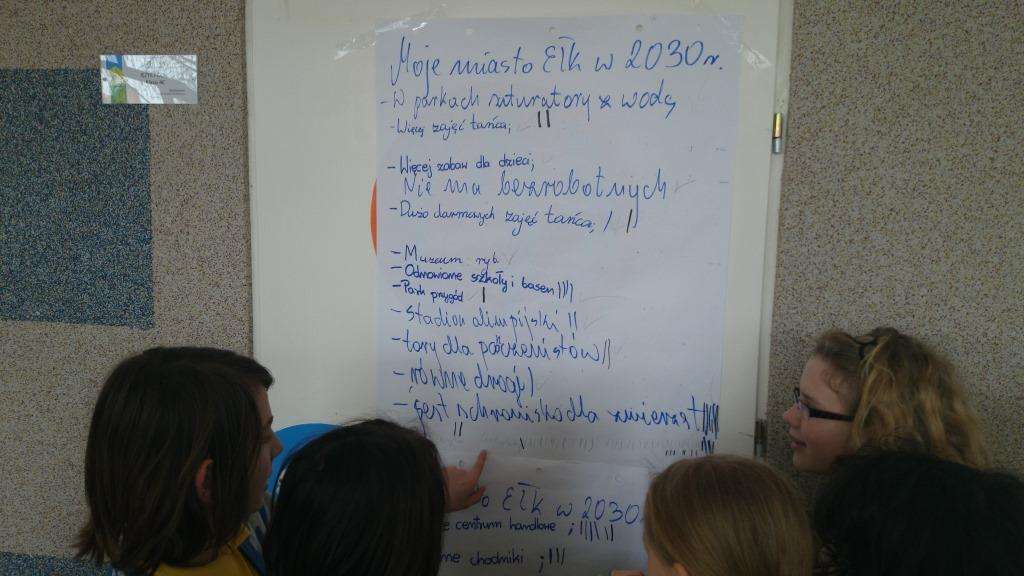 Moje miasto Ełk w 2030 r.
- W parkach saturatory z wodą
- Więcej zajęć tańca; ||
- Więcej zabaw dla dzieci;
Nie ma bezrobotnych
- Dużo darmowych zajęć tańca; / |
- Muzeum ryb
- Odnowione szkoły i basen ||||
- Park przygód |
- Stadion olimpijski ||
- tory dla
- równe drogi |
- jest schronisko dla zwierząt ||||
Ełk w 2030
centrum handlowe ; ||||||
chodniki ; |||